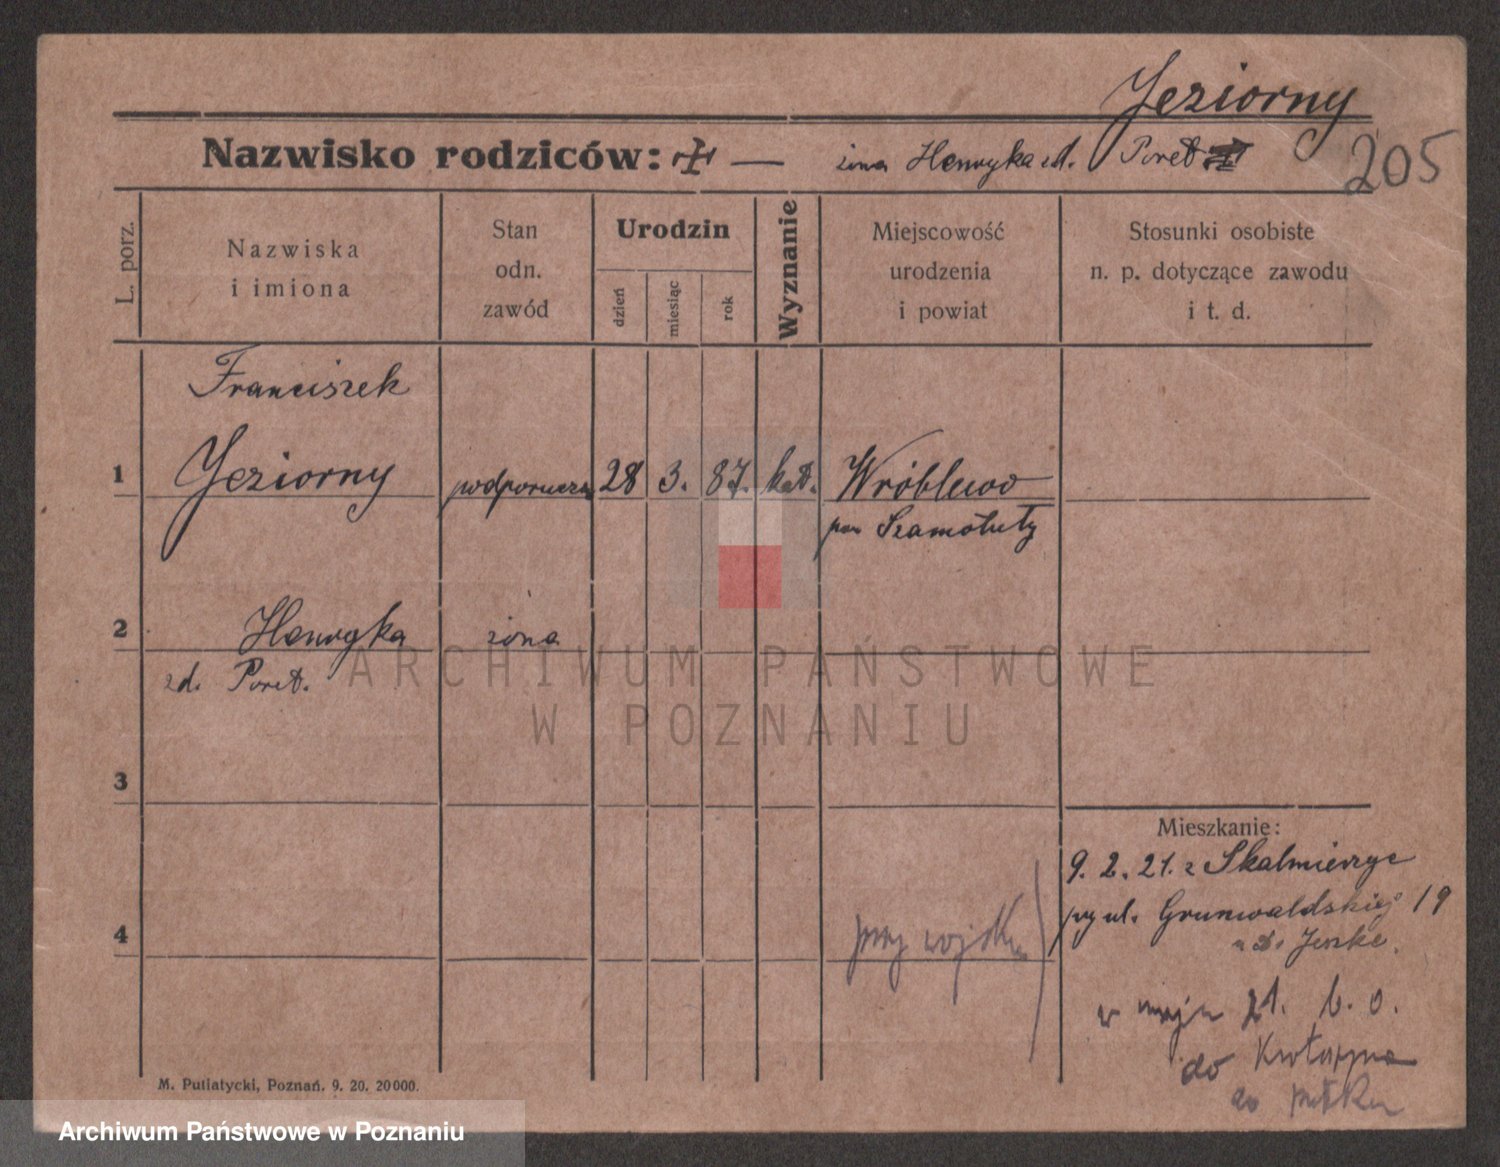 Jeziorny
Nazwisko rodziców: — żona Henryka zd. Poret
205
L. porz.
Nazwiska
i imiona
Stan
odn.
zawód
Urodzin
dzień
miesiąc
rok
Wyznanie
Miejscowość
urodzenia
i powiat
Stosunki osobiste
n. p. dotyczące zawodu
i t. d.
Franciszek
1 Jeziorny podporucz. 28 3. 87. kat. Wróblewo
pow Szamotuły
2 Henryka żona
zd. Poret.
ARCHIWUM PAŃSTWOWE
W POZNANIU
3
Mieszkanie:
9. 2. 21. z Skalmierzyc
przy ul. Grunwaldskiej 19
u Jeszke.
4 przy wojsku
w maju 21. b. o.
do
do pułku
M. Putiatycki, Poznań. 9. 20. 20000.
Archiwum Państwowe w Poznaniu